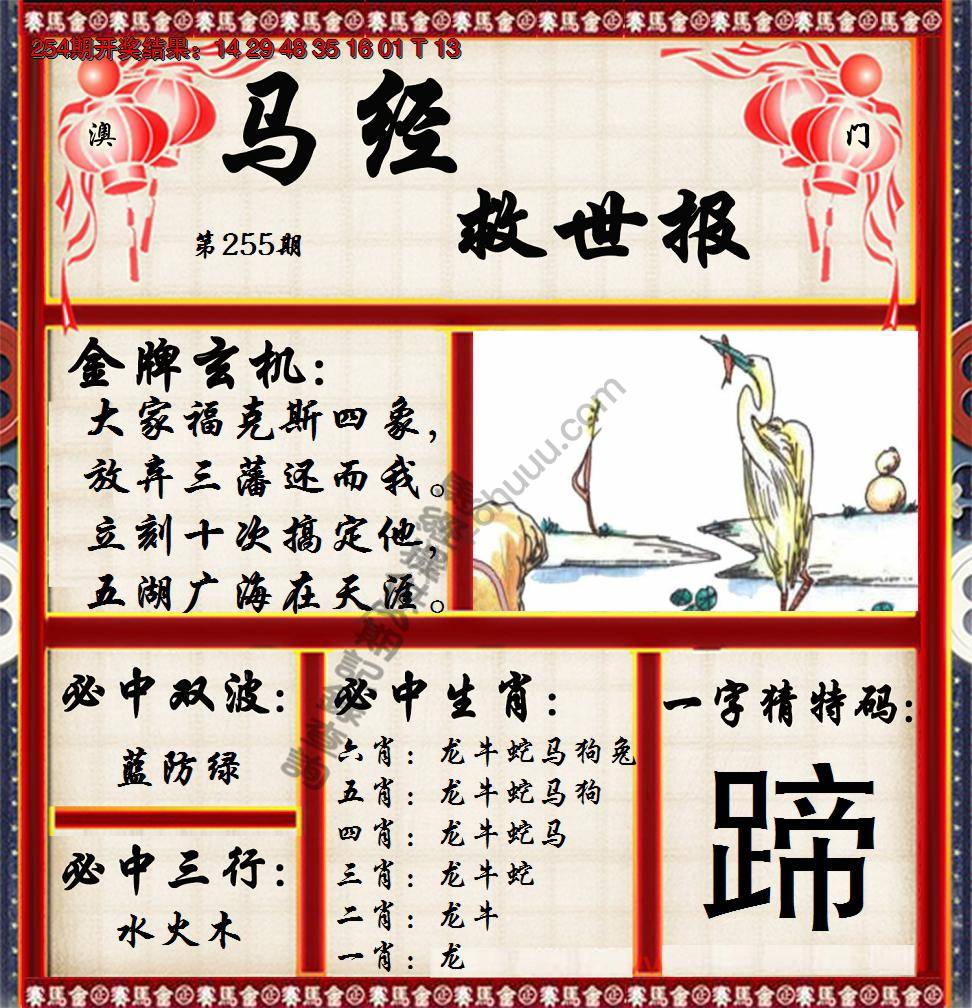 254期开奖结果：14 29 48 35 16 01 T 13
澳
门
马经
救世报
第255期
金牌玄机：
大家福克斯四象，
放弃三藩还而我。
立刻十次搞定他，
五湖广海在天涯。
必中双波：
蓝防绿
必中三行：
水火木
必中生肖：
六肖：龙牛蛇马狗兔
五肖：龙牛蛇马狗
四肖：龙牛蛇马
三肖：龙牛蛇
二肖：龙牛
一肖：龙
一字猜特码：
蹄